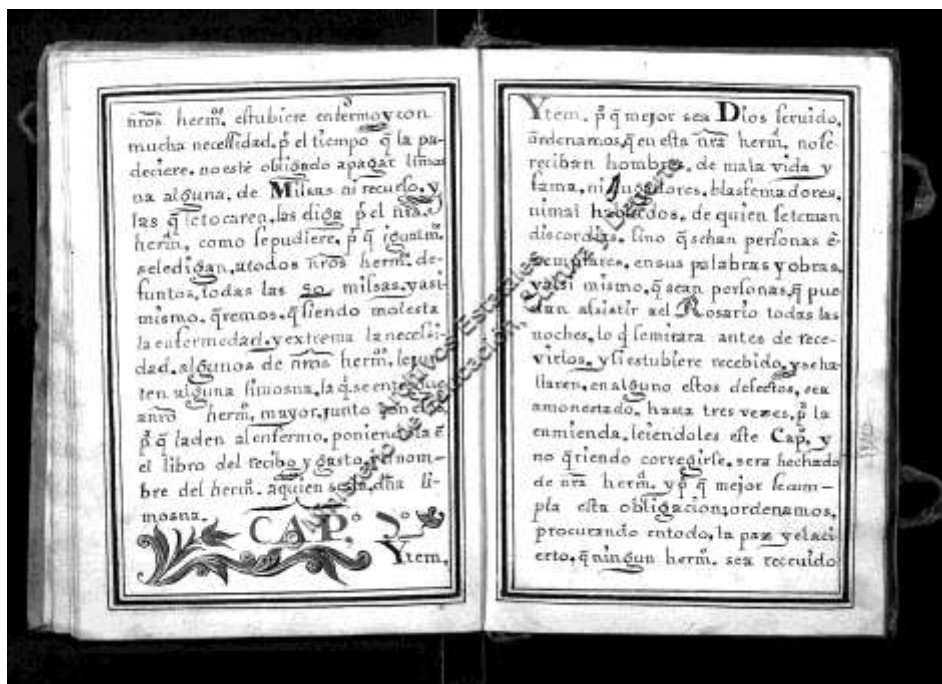 nr̃os herm.os estubiere enfermo, y con
mucha necessidad. p.r el tiempo q̃ la pa-
deciere. no esté obligado apagar limos
na alguna, de Missas ni recuesto, y
las q̃ letocaren, las diga p.r el
herm. como sepudiere, p.a q̃ igualm.te
seledigan, atodos nr̃os herm.os de-
funtos, todas las 50 missas. yasi
mismo. q̃remos. q̃ siendo molesta
la enfermedad. y extrema la necessi-
dad. algunos de nr̃os herm.os
ten alguna limosna, la q̃ se entregue
anr̃o herm.o mayor. junto con
p.a q̃ laden al enfermo, poniendola ẽ
el libro del recibo y gasto, el nom-
bre del herm.o aquien sedió, dha li-
mosna.
CAP.o 2.o
Ytem,
Ytem. p.a q̃ mejor sea Dios seruido,
ordenamos, q̃ en esta nr̃a herm.d nose
reciban hombres, de mala vida y
fama, ni Jugadores, blasfemadores,
nimal hablados, de quien seteman
discordias. sino q̃ sehan personas ẽ-
xemplares. ensus palabras y obras,
yassi mismo, q̃ sean personas, q̃ pue
dan assistir ael Rosario todas las
noches, lo q̃ semirara antes de rece-
virlos, y si estubiere recebido, y seha-
llaren, en alguno estos defectos, sea
amonestado, hasta tres vezes, p.a la
enmienda, leiendoles este Cap.o y
no q̃riendo corregirse. sera hechado
de nr̃a herm.d y p.a q̃ mejor secum-
pla esta obligacion; ordenamos,
procurando entodo, la paz yelaci-
erto, q̃ ningun herm.o sea receuido
Archivos Estatales
Ministerio de Educación, Cultura y Deporte